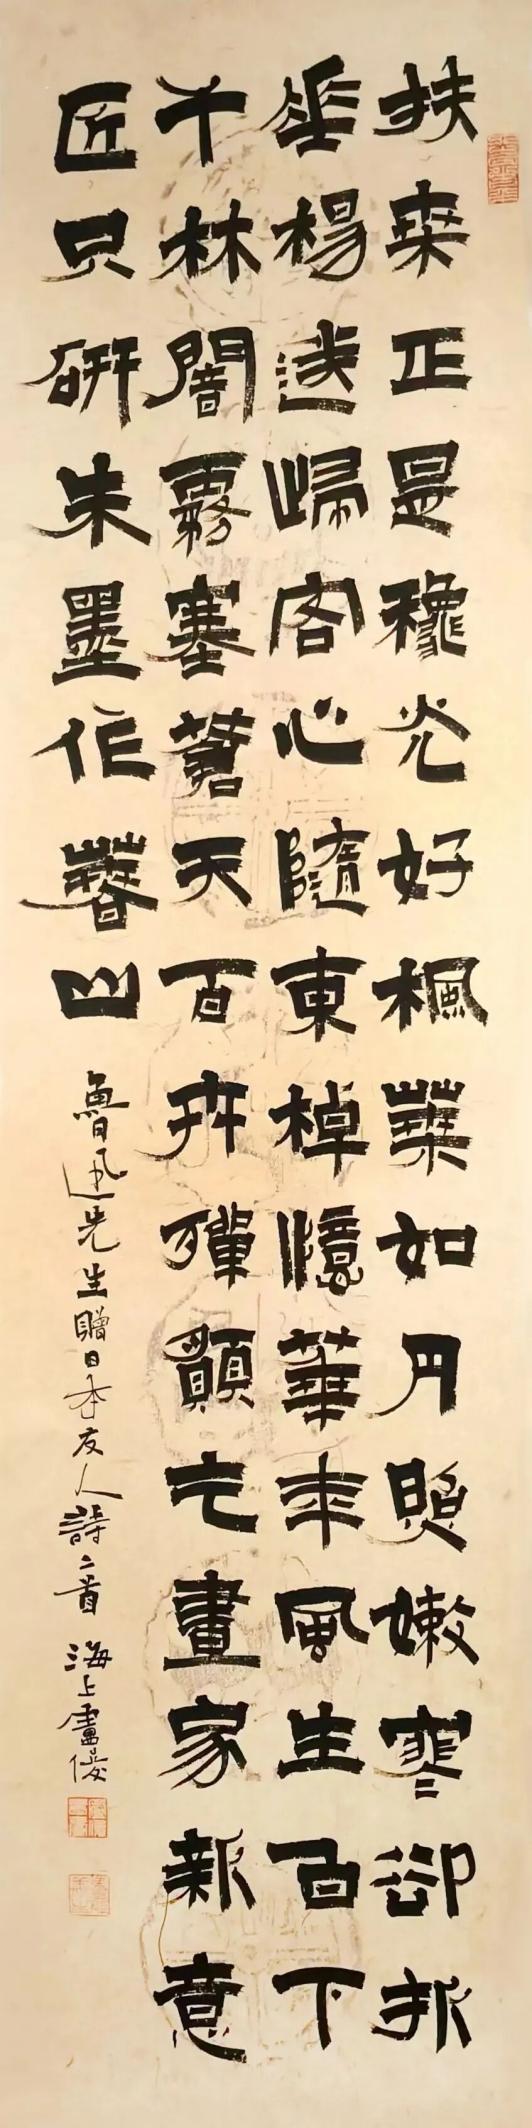 扶桒正是穐光好楓葉如丹照嫩寒卻折
垂楊送歸客心隨東棹憶華年風生白下
千林闇霧塞蒼天百卉殫願乞畫家新意
匠只研朱墨作春山
魯迅先生贈日本友人詩二首 海上盧